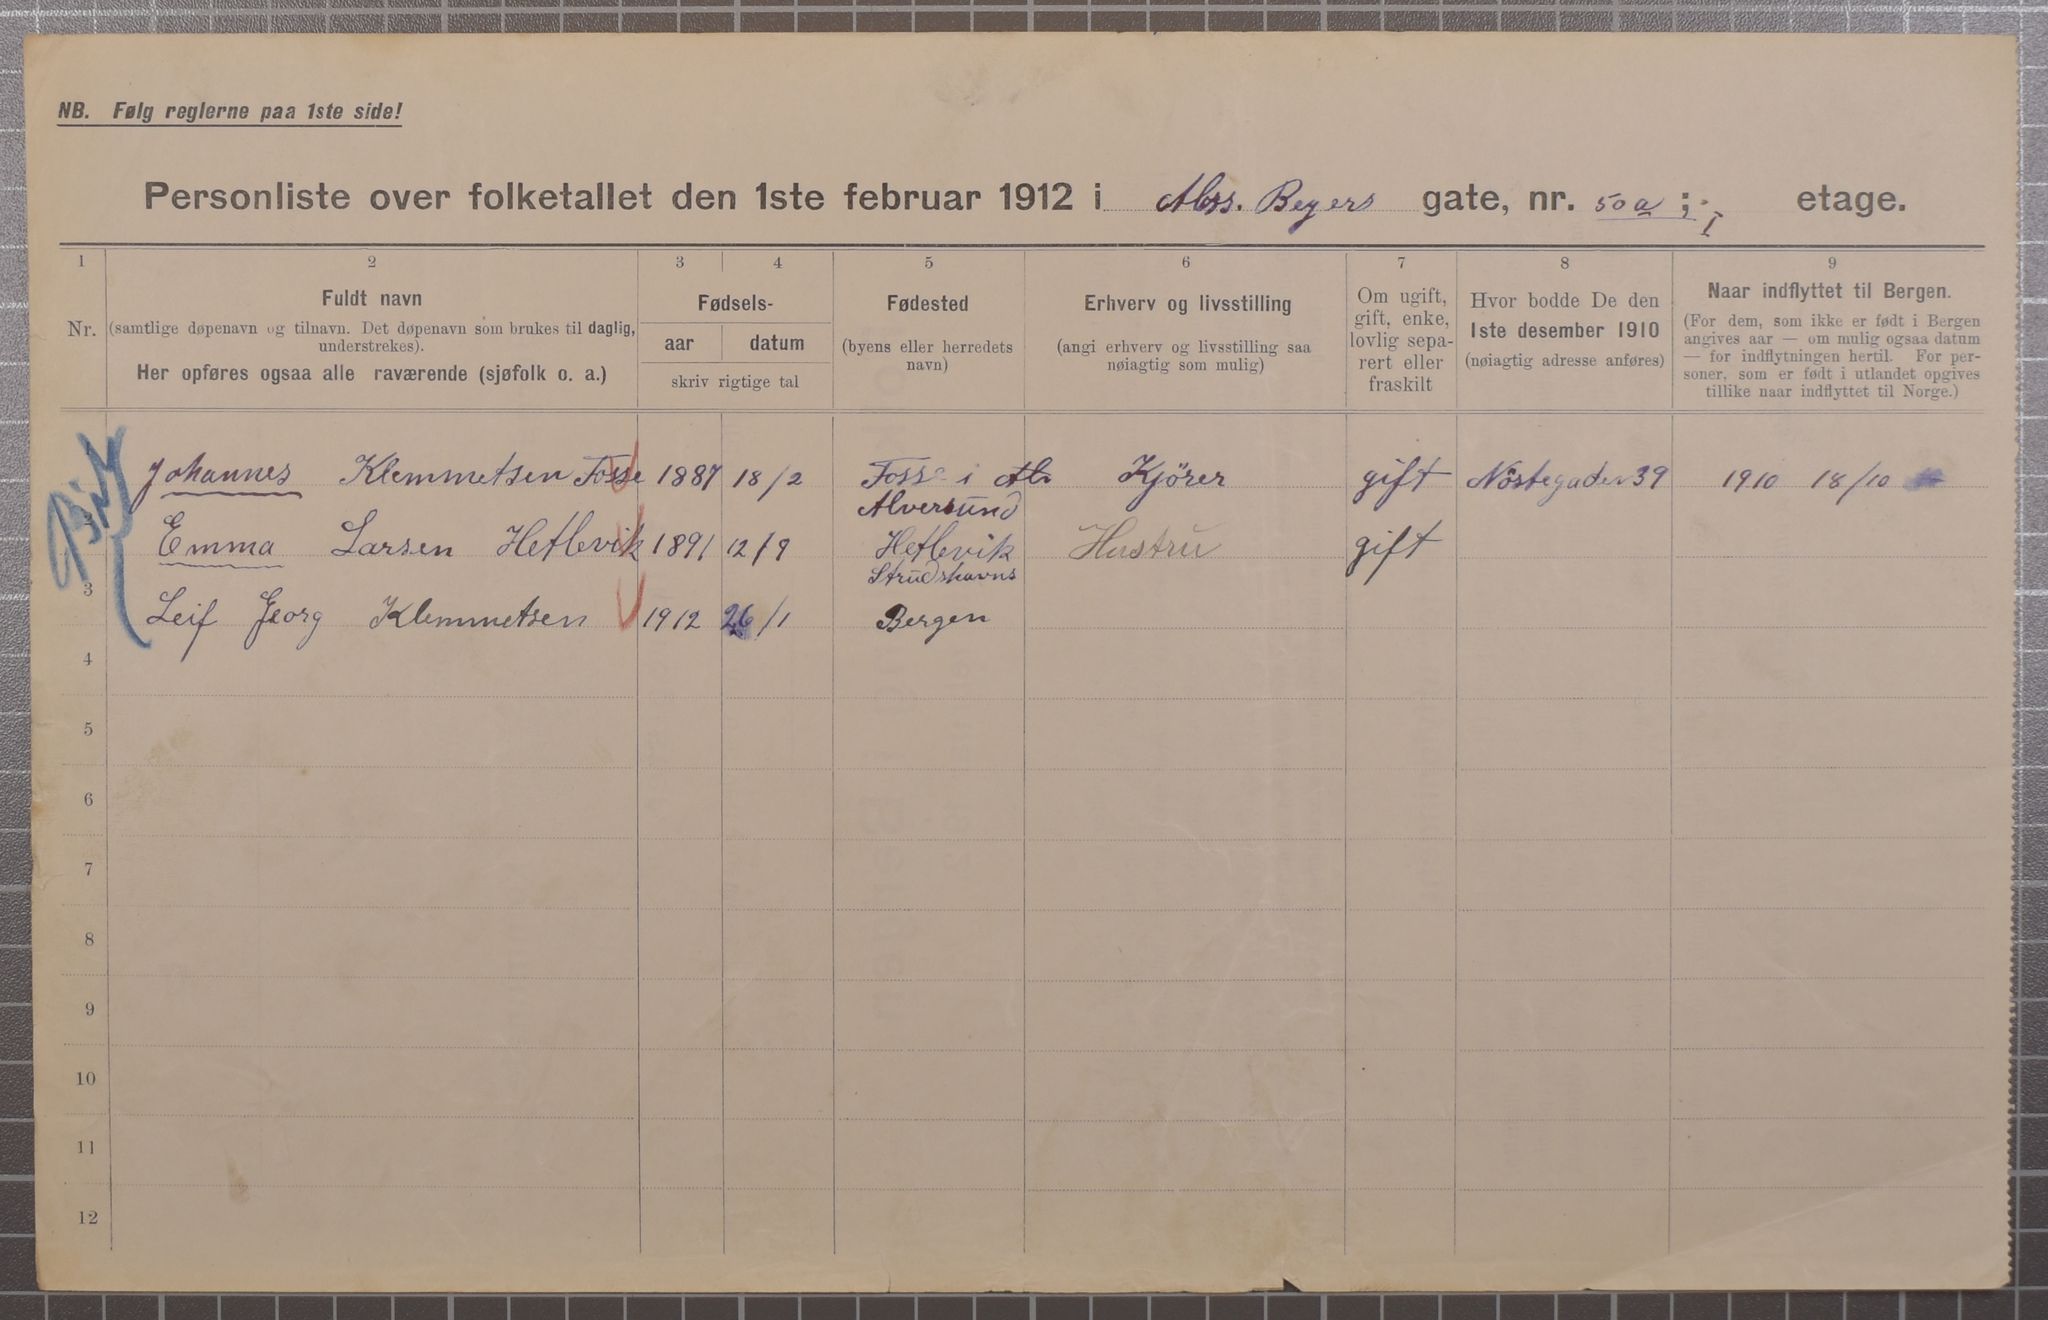 NB. Følg reglerne paa 1ste side!
Personliste over folketallet den 1ste februar 1912 i Abs. Beyers gate, nr. 50a ; I etage.
1 2 3 4 5 6 7 8 9
Nr.
Fuldt navn
(samtlige døpenavn og tilnavn. Det døpenavn som brukes til daglig,
understrekes).
Her opføres ogsaa alle raværende (sjøfolk o. a.)
Fødsels-
aar datum
skriv rigtige tal
Fødested
(byens eller herredets
navn)
Erhverv og livsstilling
(angi erhverv og livsstilling saa
nøiagtig som mulig)
Om ugift,
gift, enke,
lovlig sepa-
rert eller
fraskilt
Hvor bodde De den
1ste desember 1910
(nøiagtig adresse anføres)
Naar indflyttet til Bergen.
(For dem, som ikke er født i Bergen
angives aar — om mulig ogsaa datum
— for indflytningen hertil. For per-
soner, som er født i utlandet opgives
tillike naar indflyttet til Norge.)
Johannes Klemmetsen Fosse 1887 18/2 Fosse i Al Kjörer gift Nöstegaden 39 1910 18/10
Alversund
2 Emma Larsen Hetlevik 1891 12/9 Hetlevik Hustru gift
Strudshavns
3 Leif Georg Klemmetsen 1912 26/1 Bergen
4
5
6
7
8
9
10
11
12